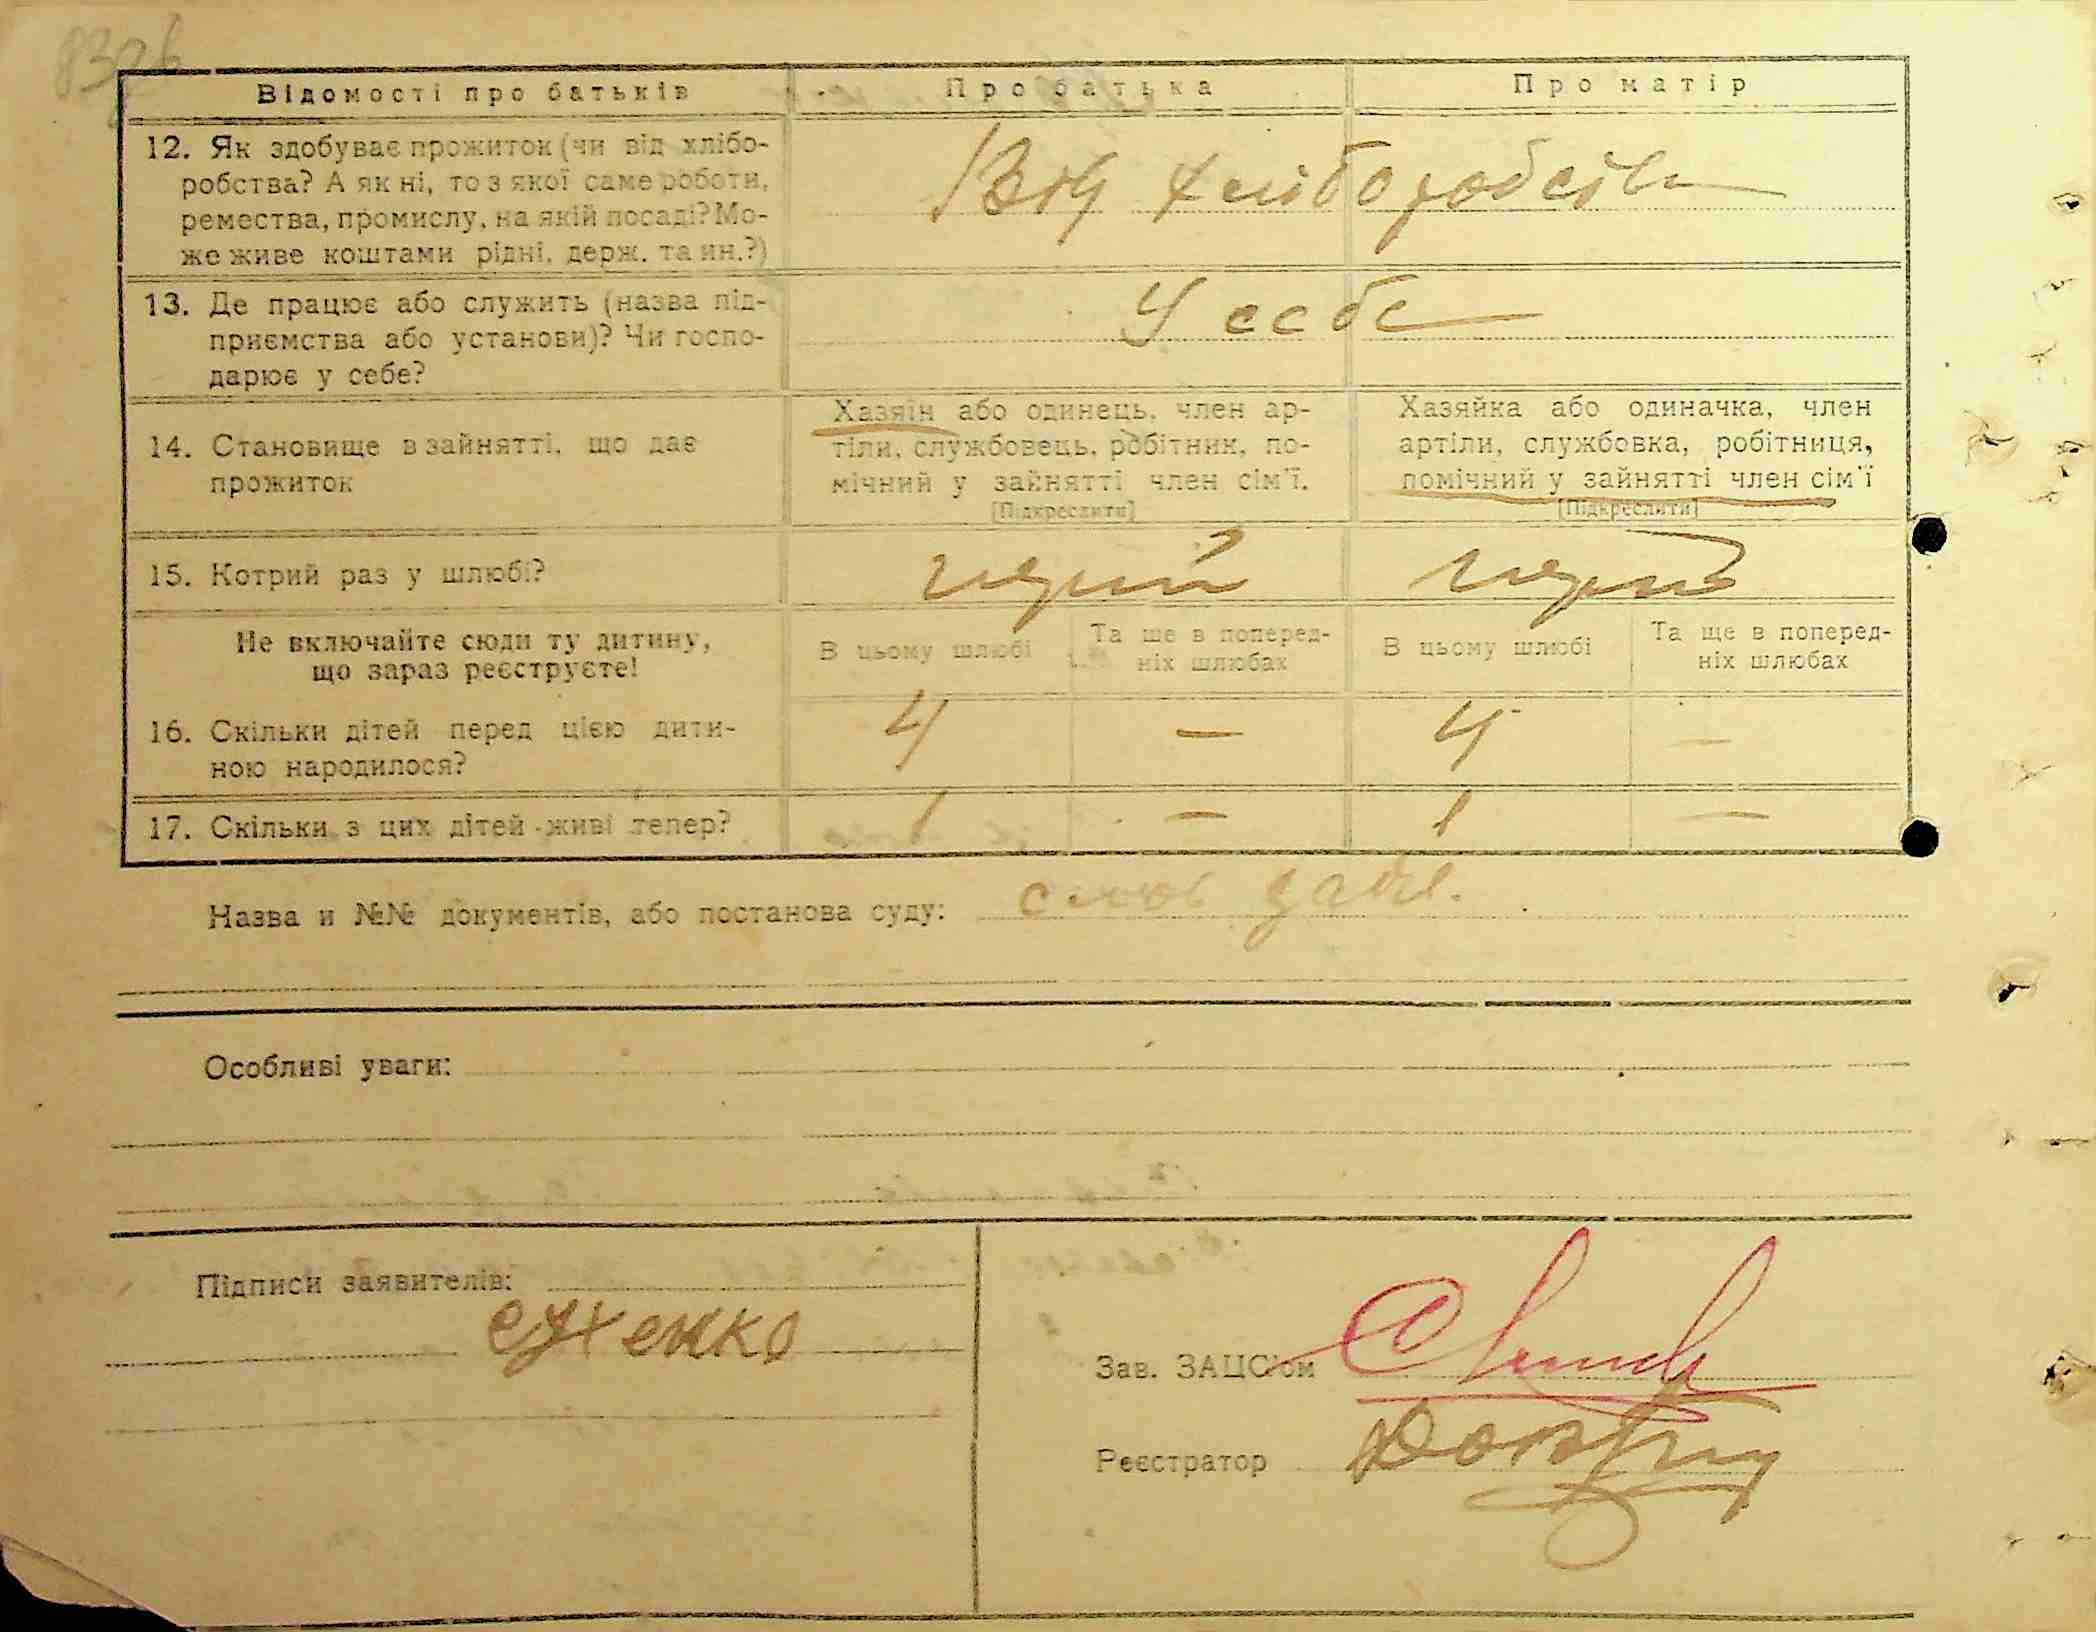 832б
Відомості про батьків Про батька Про матір
12. Як здобуває прожиток (чи від хлібо-
робства? А як ні, то з якої саме роботи,
ремества, промислу, на якій посаді? Мо-
же живе коштами рідні, держ. та ин.?)
Від хліборобства
13. Де працює або служить (назва під-
приємства або установи)? Чи госпо-
дарює у себе?
У себе
14. Становище в зайнятті, що дає
прожиток
Хазяїн або одинець, член ар-
тіли, службовець, робітник, по-
мічний у зайнятті член сім'ї.
[Підкреслити]
Хазяйка або одиначка, член
артіли, службовка, робітниця,
помічний у зайнятті член сім'ї
[Підкреслити]
15. Котрий раз у шлюбі?
Не включайте сюди ту дитину,
що зараз реєструєте!
В цьому шлюбі
Та ще в поперед-
ніх шлюбах
В цьому шлюбі
Та ще в поперед-
ніх шлюбах
16. Скільки дітей перед цією дити-
ною народилося?
4 — 4 —
17. Скільки з цих дітей живі тепер? 1 — 1 —
Назва и №№ документів, або постанова суду:
Особливі уваги:
Підписи заявителів:
сухенко
Зав. ЗАЦС'ом
Реєстратор